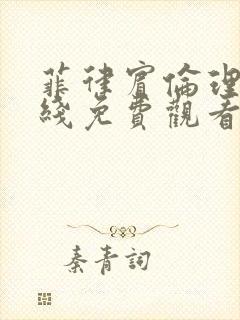 菲律賓倫理
綫免費觀看
秦青詞